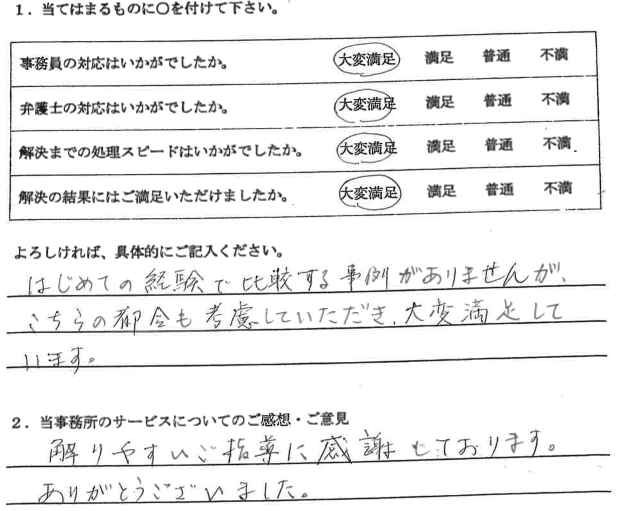 1．当てはまるものに○を付けて下さい。
事務員の対応はいかがでしたか。 大変満足 満足 普通 不満
弁護士の対応はいかがでしたか。 大変満足 満足 普通 不満
解決までの処理スピードはいかがでしたか。 大変満足 満足 普通 不満
解決の結果にはご満足いただけましたか。 大変満足 満足 普通 不満
よろしければ、具体的にご記入ください。
はじめての経験で比較する事例がありませんが、
こちらの都合も考慮していただき、大変満足して
います。
2．当事務所のサービスについてのご感想・ご意見
解りやすいご指導に感謝しております。
ありがとうございました。